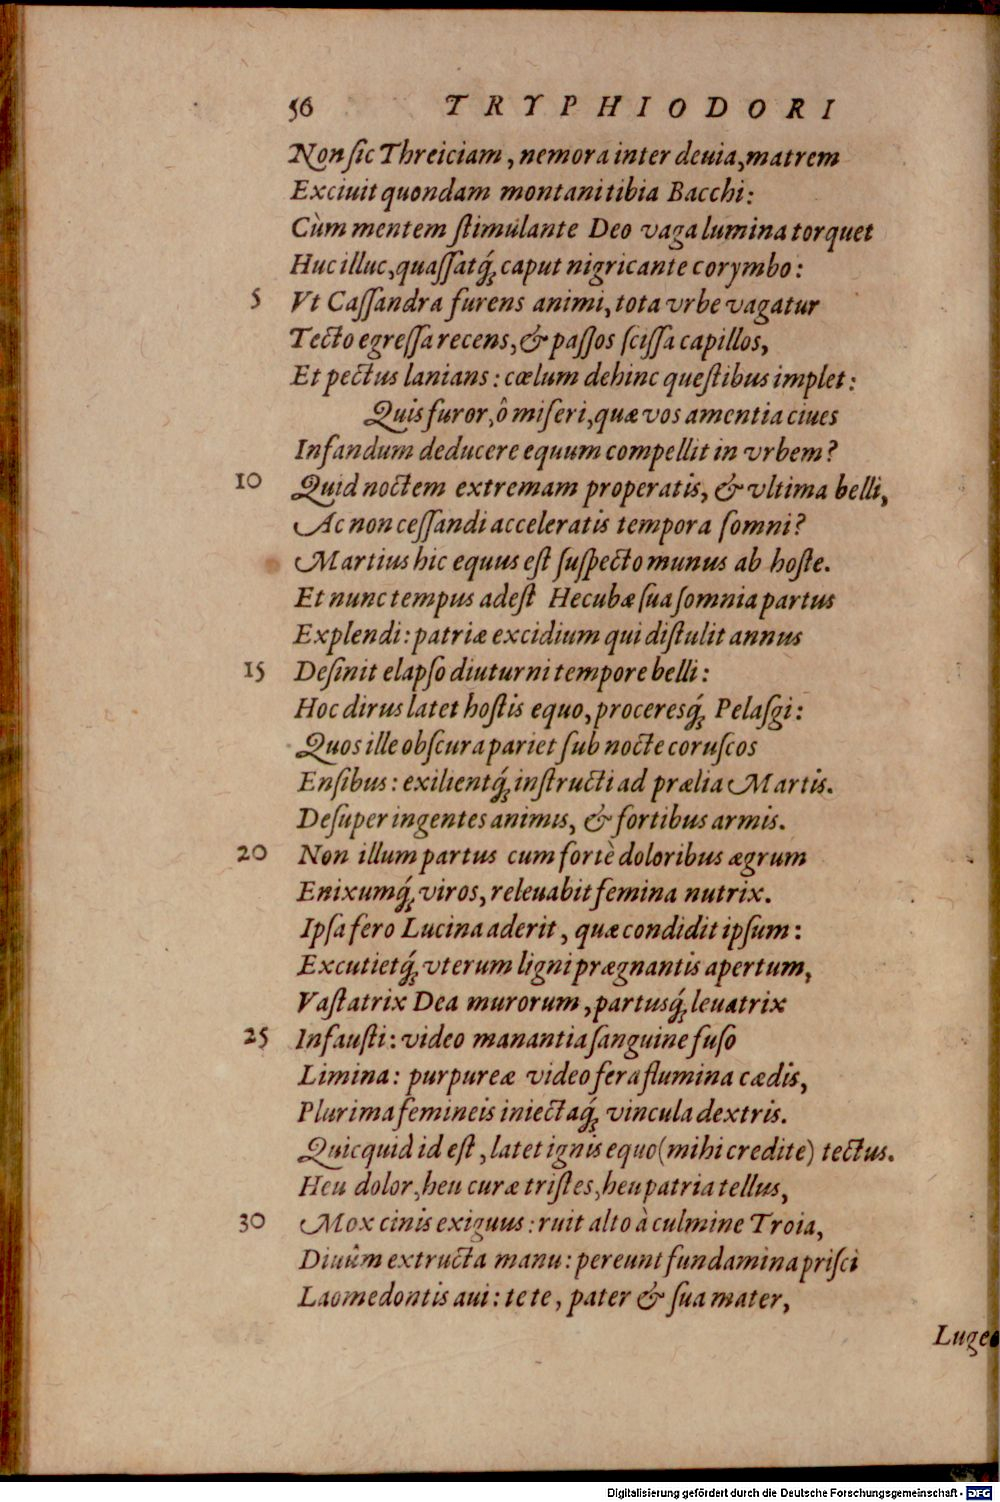 56 TRYPHIODORI
Non sic Threiciam, nemora inter deuia, matrem
Exciuit quondam montani tibia Bacchi:
Cùm mentem stimulante Deo vaga lumina torquet
Huc illuc, quaſſatq́ꝫ caput nigricante corymbo:
5 Vt Caſſandra furens animi, tota vrbe vagatur
Tecto egreſſa recens, & paſſos ſciſſa capillos,
Et pectus lanians: cœlum dehinc queſtibus implet:
Quis furor, ô miſeri, quæ vos amentia ciues
Infandum deducere equum compellit in vrbem?
10 Quid noctem extremam properatis, & vltima belli,
Ac non ceſſandi acceleratis tempora ſomni?
Martius hic equus eſt ſuſpecto munus ab hoſte.
Et nunc tempus adeſt Hecubæ ſua ſomnia partus
Explendi: patriæ excidium qui diſtulit annus
15 Deſinit elapſo diuturni tempore belli:
Hoc dirus latet hoſtis equo, proceresq́ꝫ Pelaſgi:
Quos ille obſcura pariet ſub nocte coruſcos
Enſibus: exilientq́ꝫ inſtructi ad prælia Martis.
Deſuper ingentes animis, & fortibus armis.
20 Non illum partus cum fortè doloribus ægrum
Enixumq́ꝫ viros, releuabit femina nutrix.
Ipſa fero Lucina aderit, quæ condidit ipſum:
Excutietq́ꝫ vterum ligni prægnantis apertum,
Vaſtatrix Dea murorum, partusq́ꝫ leuatrix
25 Infauſti: video manantia ſanguine fuſo
Limina: purpureæ video fera flumina cædis,
Plurima femineis iniectaq́ꝫ vincula dextris.
Quicquid id eſt, latet ignis equo (mihi credite) tectus.
Heu dolor, heu curæ triſtes, heu patria tellus,
30 Mox cinis exiguus: ruit alto à culmine Troia,
Diuûm extructa manu: pereunt fundamina priſci
Laomedontis aui: te te, pater & ſua mater,
Lugeo
Digitalisierung gefördert durch die Deutsche Forschungsgemeinschaft - DFG